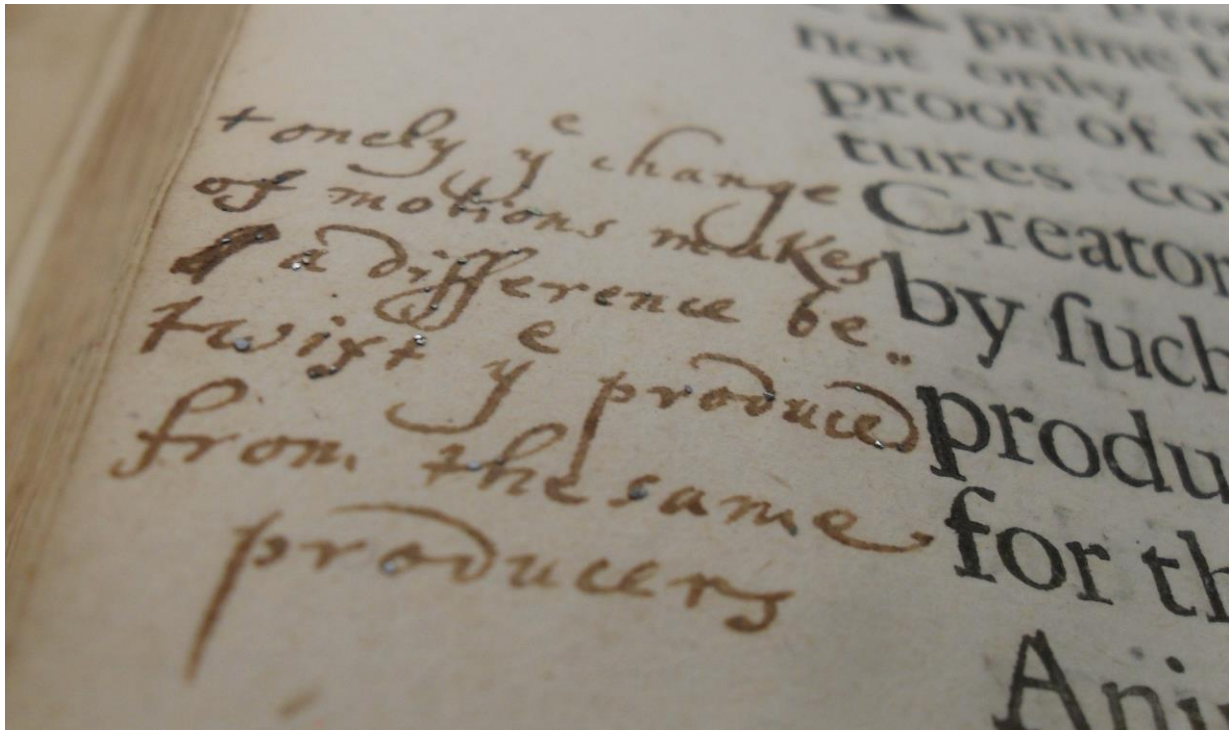 + onely yᵉ change
of motions makes
a difference be
twixt yᵉ produced
from the same
producers
prime
not only
proof of
tures
Creator
by ſuch
produ
for th
Ani